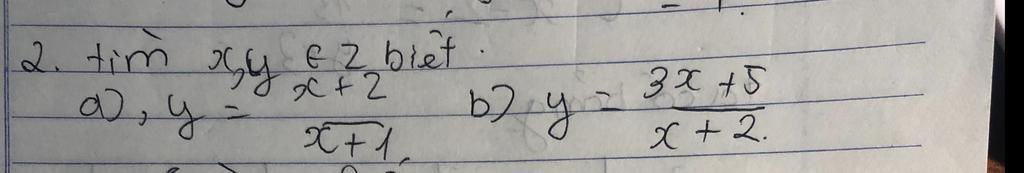 2. tìm x,y ∈ Z biết.
a), y = x+2 / x+1, b) y = 3x+5 / x+2.